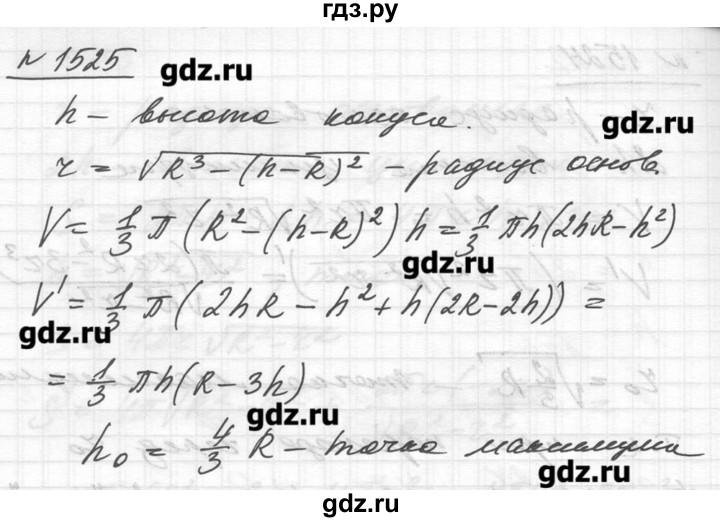 гдз.ру
№ 1525
gdz.ru
h — высота конуса.
gdz.ru
r = √(R³ − (h − R)²) — радиус основ.
V = 1/3 π (R² − (h − R)²) h = 1/3 πh(2hR − h²)
gdz.ru
V' = 1/3 π (2hR − h² + h(2R − 2h)) =
gdz.ru
= 1/3 πh(R − 3h)
gdz.ru
h₀ = 4/3 R — точка максимума
gdz.ru
gdz.ru